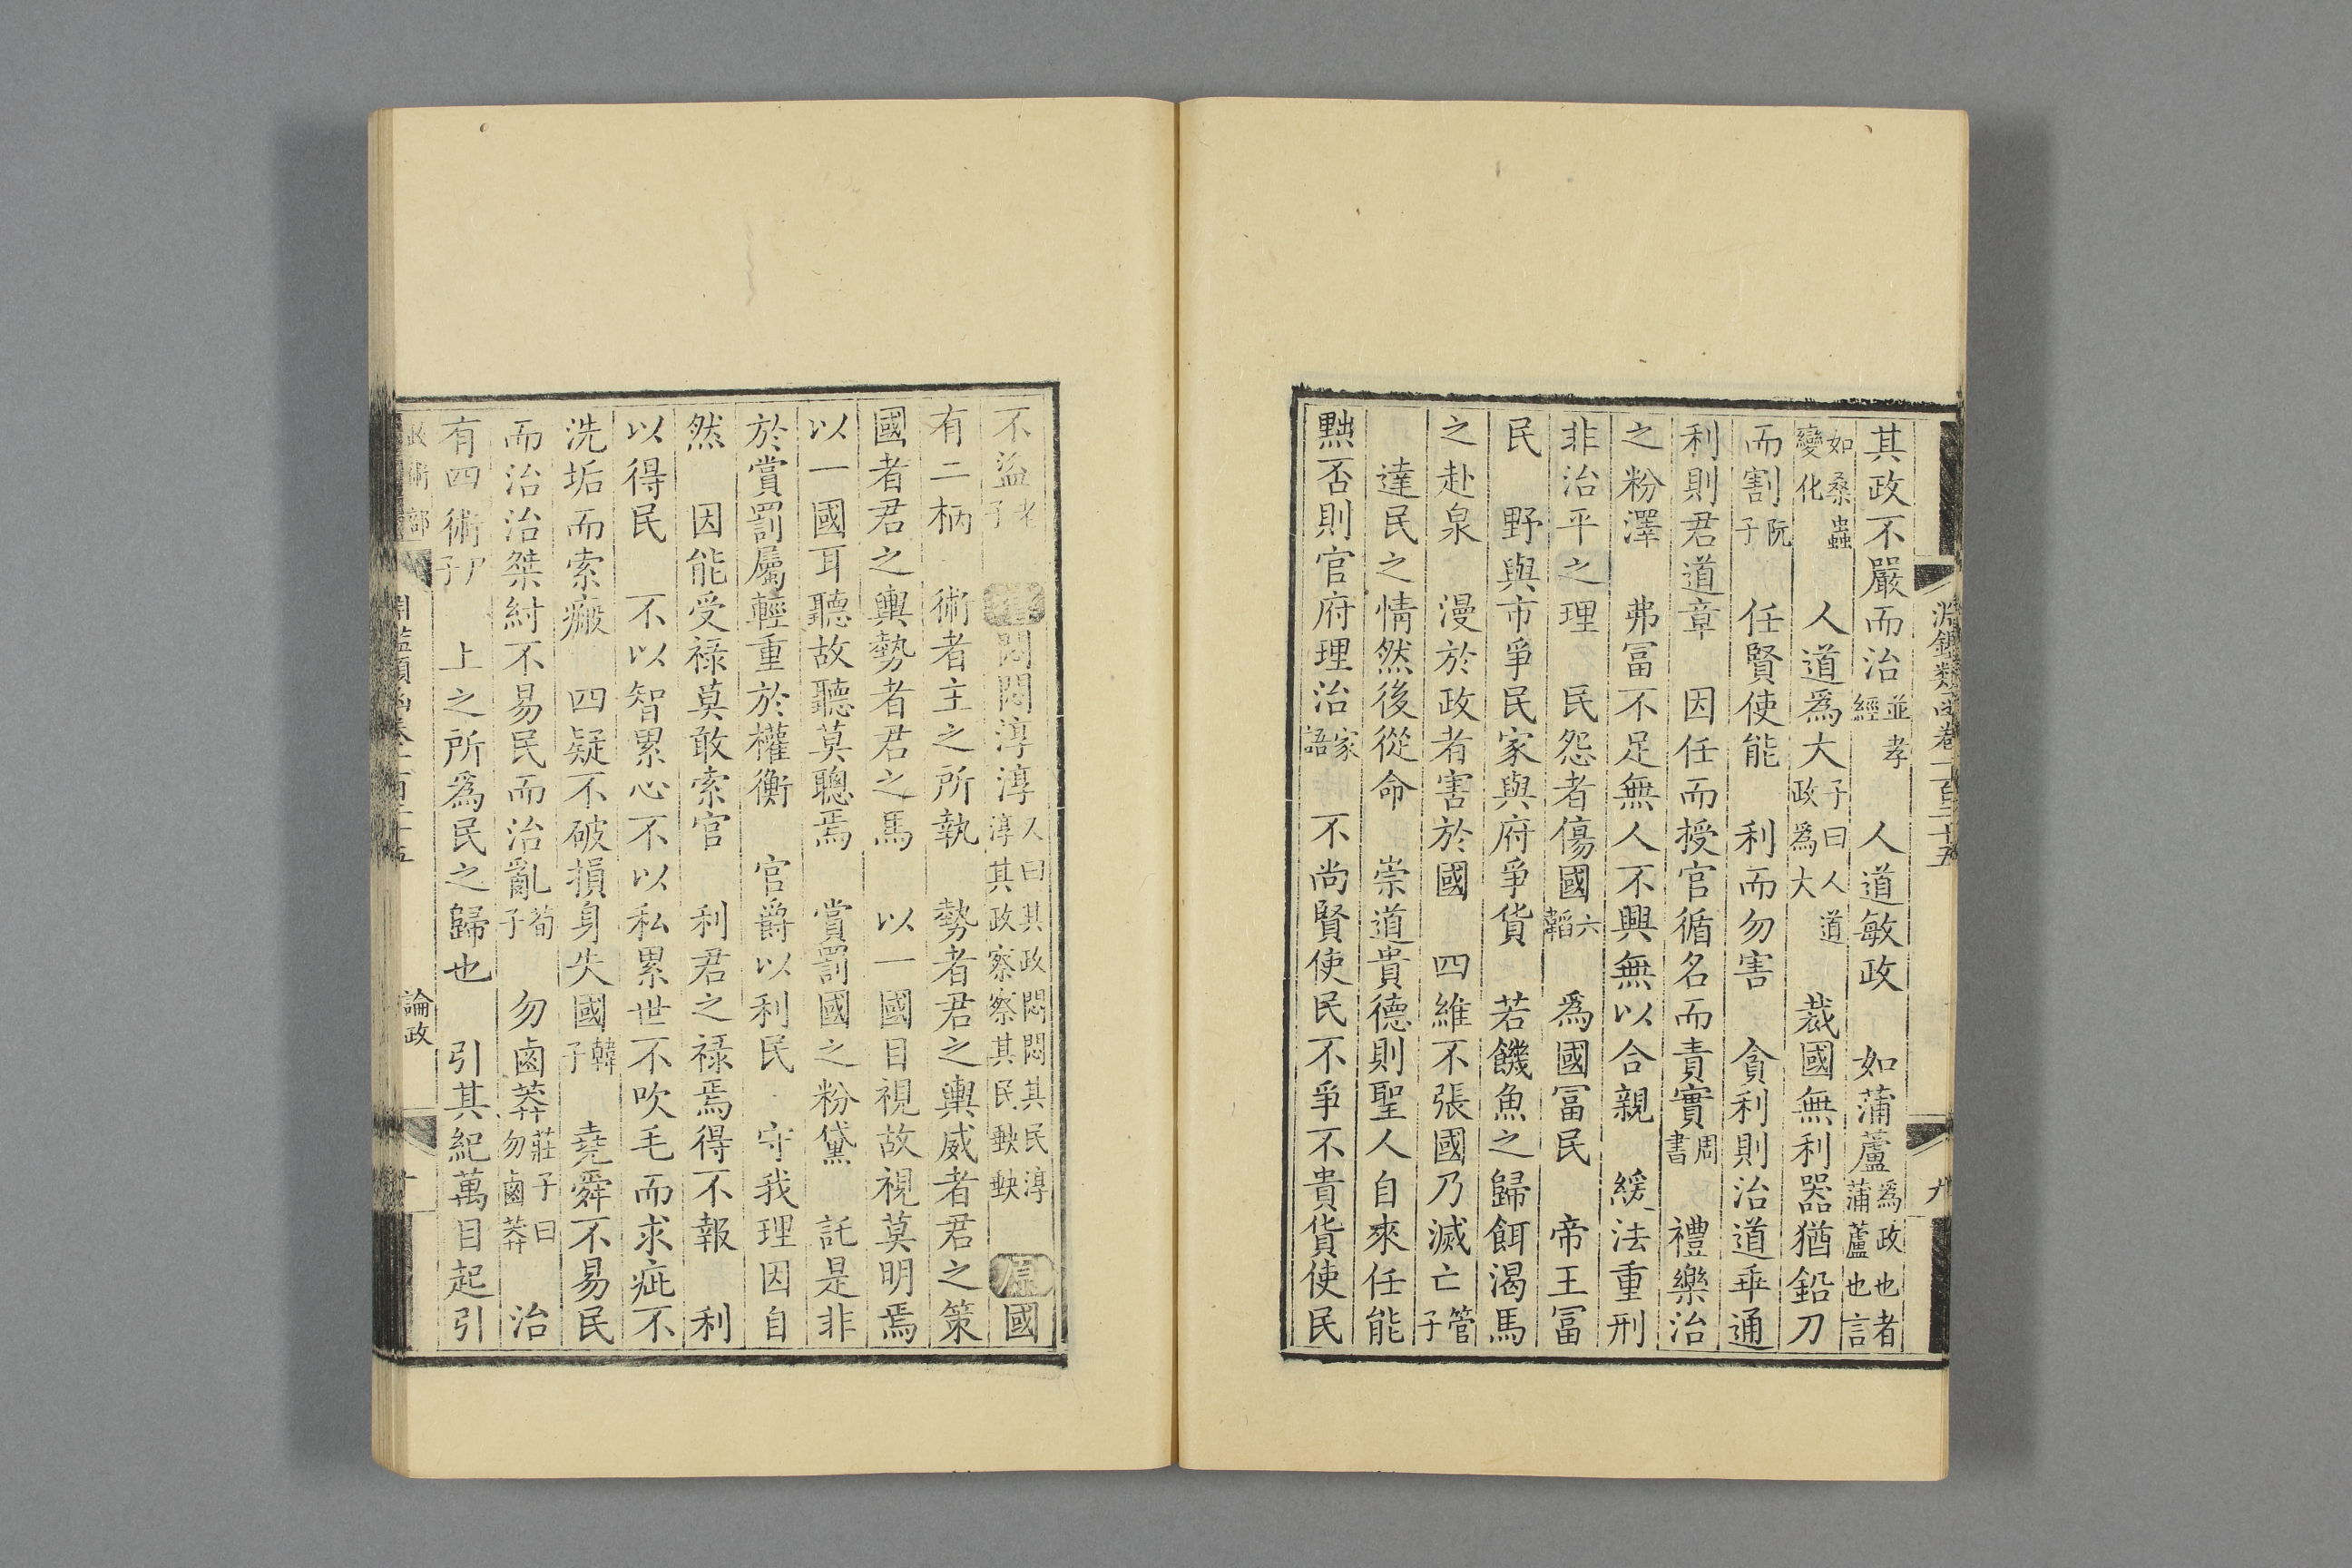 淵鑑類函卷一百二十五
九
其政不嚴而治並孝經　人道敏政　如蒲蘆爲政也者蒲蘆也言
如桑蟲變化　人道爲大子曰人道政爲大　裁國無利器猶鉛刀
而割阮子　任賢使能　利而勿害　貪利則治道乖通
利則君道章　因任而授官循名而責實周書　禮樂治
之粉澤　弗冨不足無人不興無以合親　緩法重刑
非治平之理　民怨者傷國六韜　爲國冨民　帝王冨
民　野與市爭民家與府爭貨　若饑魚之歸餌渴馬
之赴泉　漫於政者害於國　四維不張國乃滅亡管子
達民之情然後從命　崇道貴德則聖人自來任能
黜否則官府理治家語　不尚賢使民不爭不貴貨使民
不盜老子　悶悶淳淳又曰其政悶悶其民淳淳其政察察其民𡙇𡙇　原國
有二柄　術者主之所執　勢者君之輿威者君之策
國者君之輿勢者君之馬　以一國目視故視莫明焉
以一國耳聽故聽莫聰焉　賞罰國之粉黛　託是非
於賞罰屬輕重於權衡　官爵以利民　守我理因自
然　因能受祿莫敢索官　利君之祿焉得不報　利
以得民　不以智累心不以私累世不吹毛而求疵不
洗垢而索瘢　四疑不破損身失國韓子　堯舜不易民
而治治桀紂不易民而治亂荀子　勿鹵莽莊子曰勿鹵莽　治
有四術尸子　上之所爲民之歸也　引其紀萬目起引
政術部
淵鑑類函卷一百二十五
論政
十